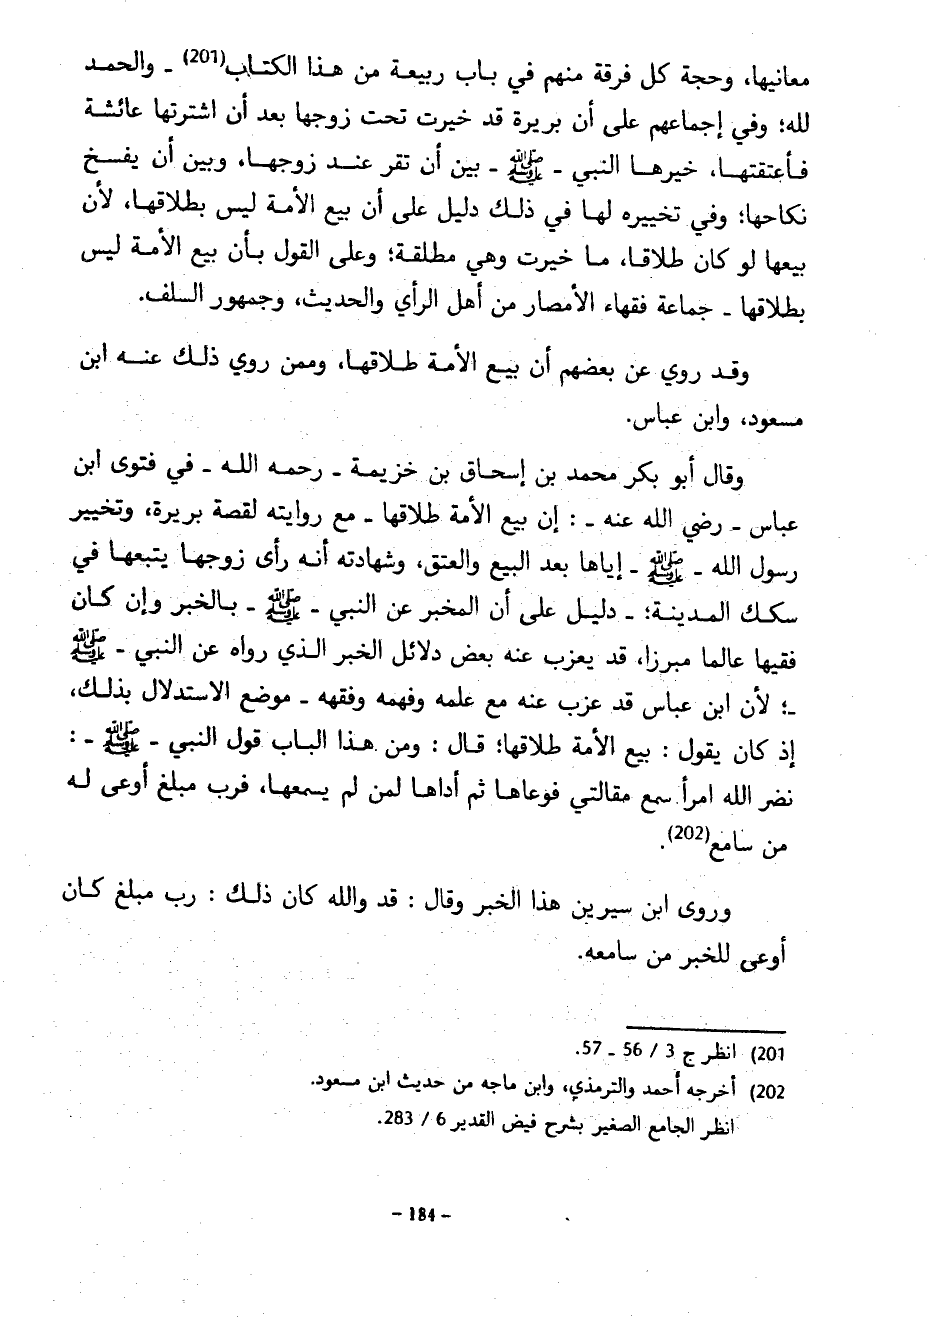 معانيها، وحجة كل فرقة منهم في باب ربيعة من هذا الكتاب(201) ـ والحمد
لله؛ وفي إجماعهم على أن بريرة قد خيرت تحت زوجها بعد أن اشترتها عائشة
فأعتقتها، خيرها النبي ـ ﷺ ـ بين أن تقر عند زوجها، وبين أن يفسخ
نكاحها؛ وفي تخييره لها في ذلك دليل على أن بيع الأمة ليس بطلاقها، لأن
بيعها لو كان طلاقا، ما خيرت وهي مطلقة؛ وعلى القول بأن بيع الأمة ليس
بطلاقها ـ جماعة فقهاء الأمصار من أهل الرأي والحديث، وجمهور السلف.
وقد روي عن بعضهم أن بيع الأمة طلاقها، وممن روي ذلك عنه ابن
مسعود، وابن عباس.
وقال أبو بكر محمد بن إسحاق بن خزيمة ـ رحمه الله ـ في فتوى ابن
عباس ـ رضي الله عنه ـ : إن بيع الأمة طلاقها ـ مع روايته لقصة بريرة، وتخيير
رسول الله ـ ﷺ ـ إياها بعد البيع والعتق، وشهادته أنه رأى زوجها يتبعها في
سكك المدينة؛ ـ دليل على أن المخبر عن النبي ـ ﷺ ـ بالخبر وإن كان
فقيها عالما مبرزا، قد يعزب عنه بعض دلائل الخبر الذي رواه عن النبي ـ ﷺ
ـ؛ لأن ابن عباس قد عزب عنه مع علمه وفهمه وفقهه ـ موضع الاستدلال بذلك،
إذ كان يقول : بيع الأمة طلاقها؛ قال : ومن هذا الباب قول النبي ـ ﷺ ـ :
نضر الله امرأ سمع مقالتي فوعاها ثم أداها لمن لم يسمعها، فرب مبلغ أوعى له
من سامع(202).
وروى ابن سيرين هذا الخبر وقال : قد والله كان ذلك : رب مبلغ كان
أوعى للخبر من سامعه.
201) انظر ج 3 / 56 ـ 57.
202) أخرجه أحمد والترمذي، وابن ماجه من حديث ابن مسعود.
انظر الجامع الصغير بشرح فيض القدير 6 / 283.
- 184 -